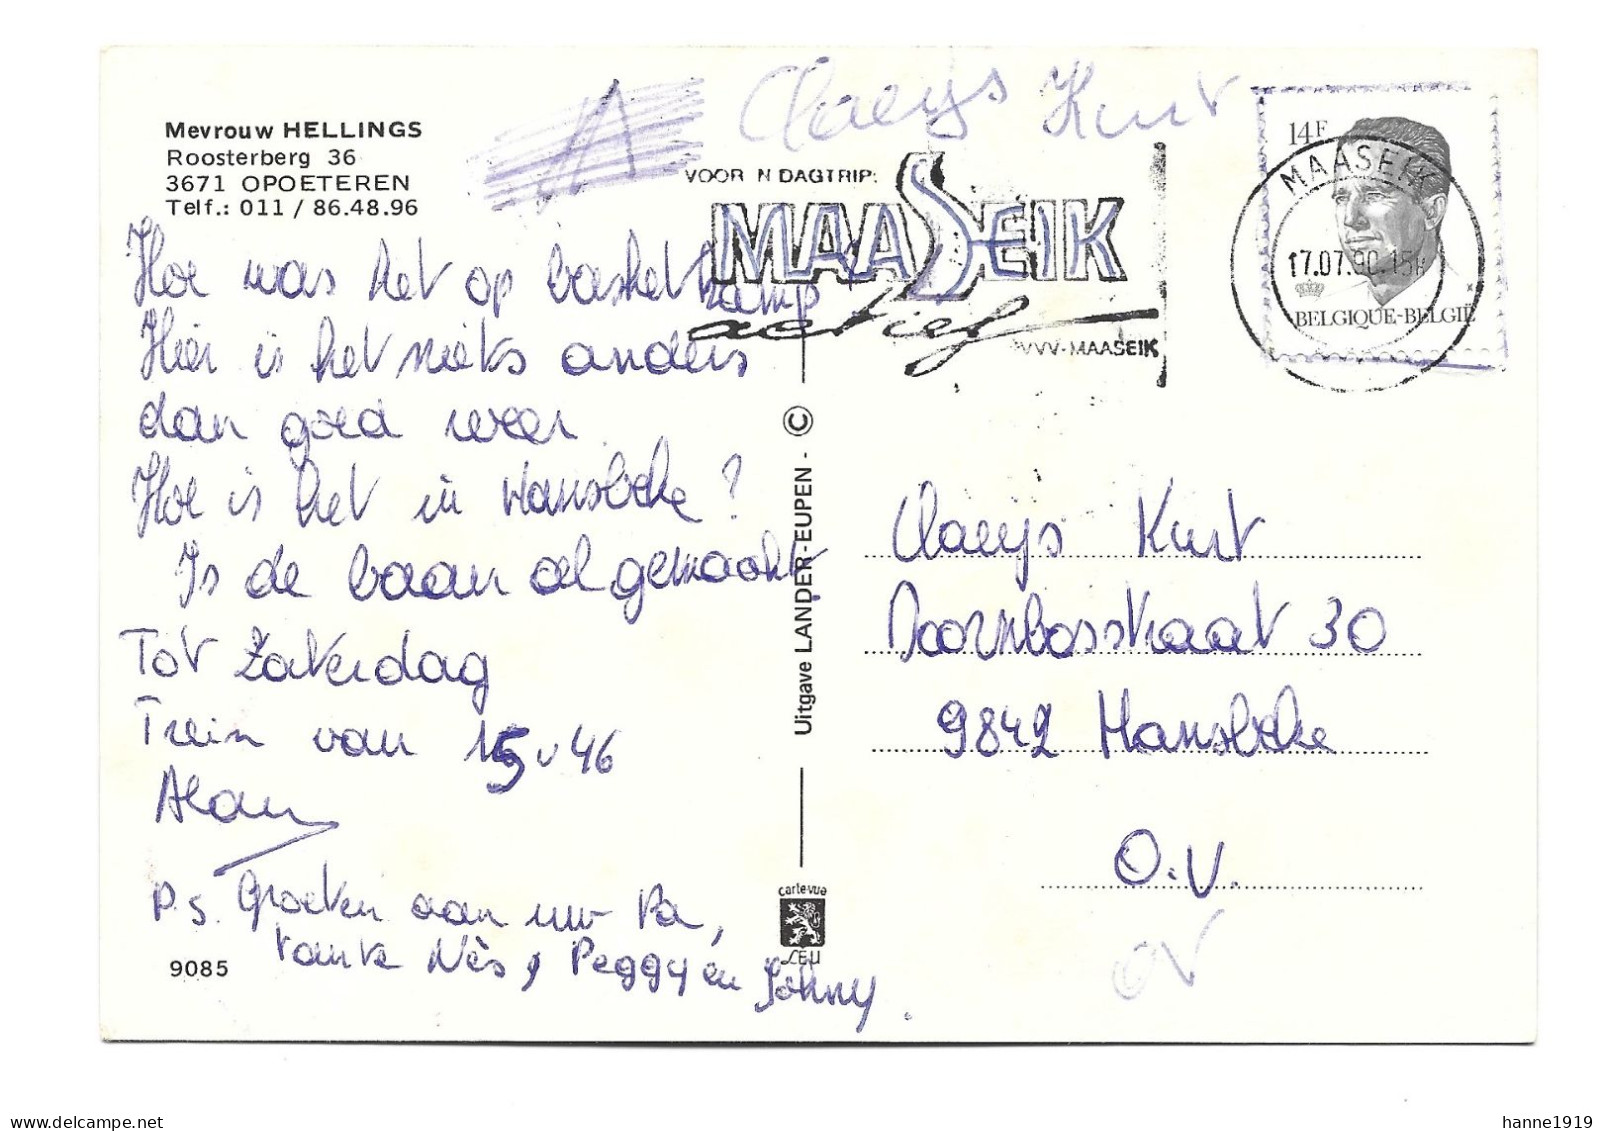 Mevrouw HELLINGS
Roosterberg 36
3671 OPOETEREN
Telf.: 011 / 86.48.96
A
Claeys Kurt
VOOR 'N DAGTRIP:
MAASEIK
actief
VVV-MAASEIK
14F
MAASEIK
17.07.90.15H
BELGIQUE-BELGIË
Hoe was het op basketkamp?
Hier is het niets anders
dan goed weer
Hoe is het in Hansbeke?
Is de baan al gemaakt
Tot Zaterdag
Trein van 15u46
Alan
P.S. Groeten aan uw Pa,
tante Nès, Peggy en Johny.
9085
Uitgave LANDER-EUPEN - ©
carte vue
Claeys Kurt
Doornbosstraat 30
9842 Hansbeke
O.V.
OV
hanne1919